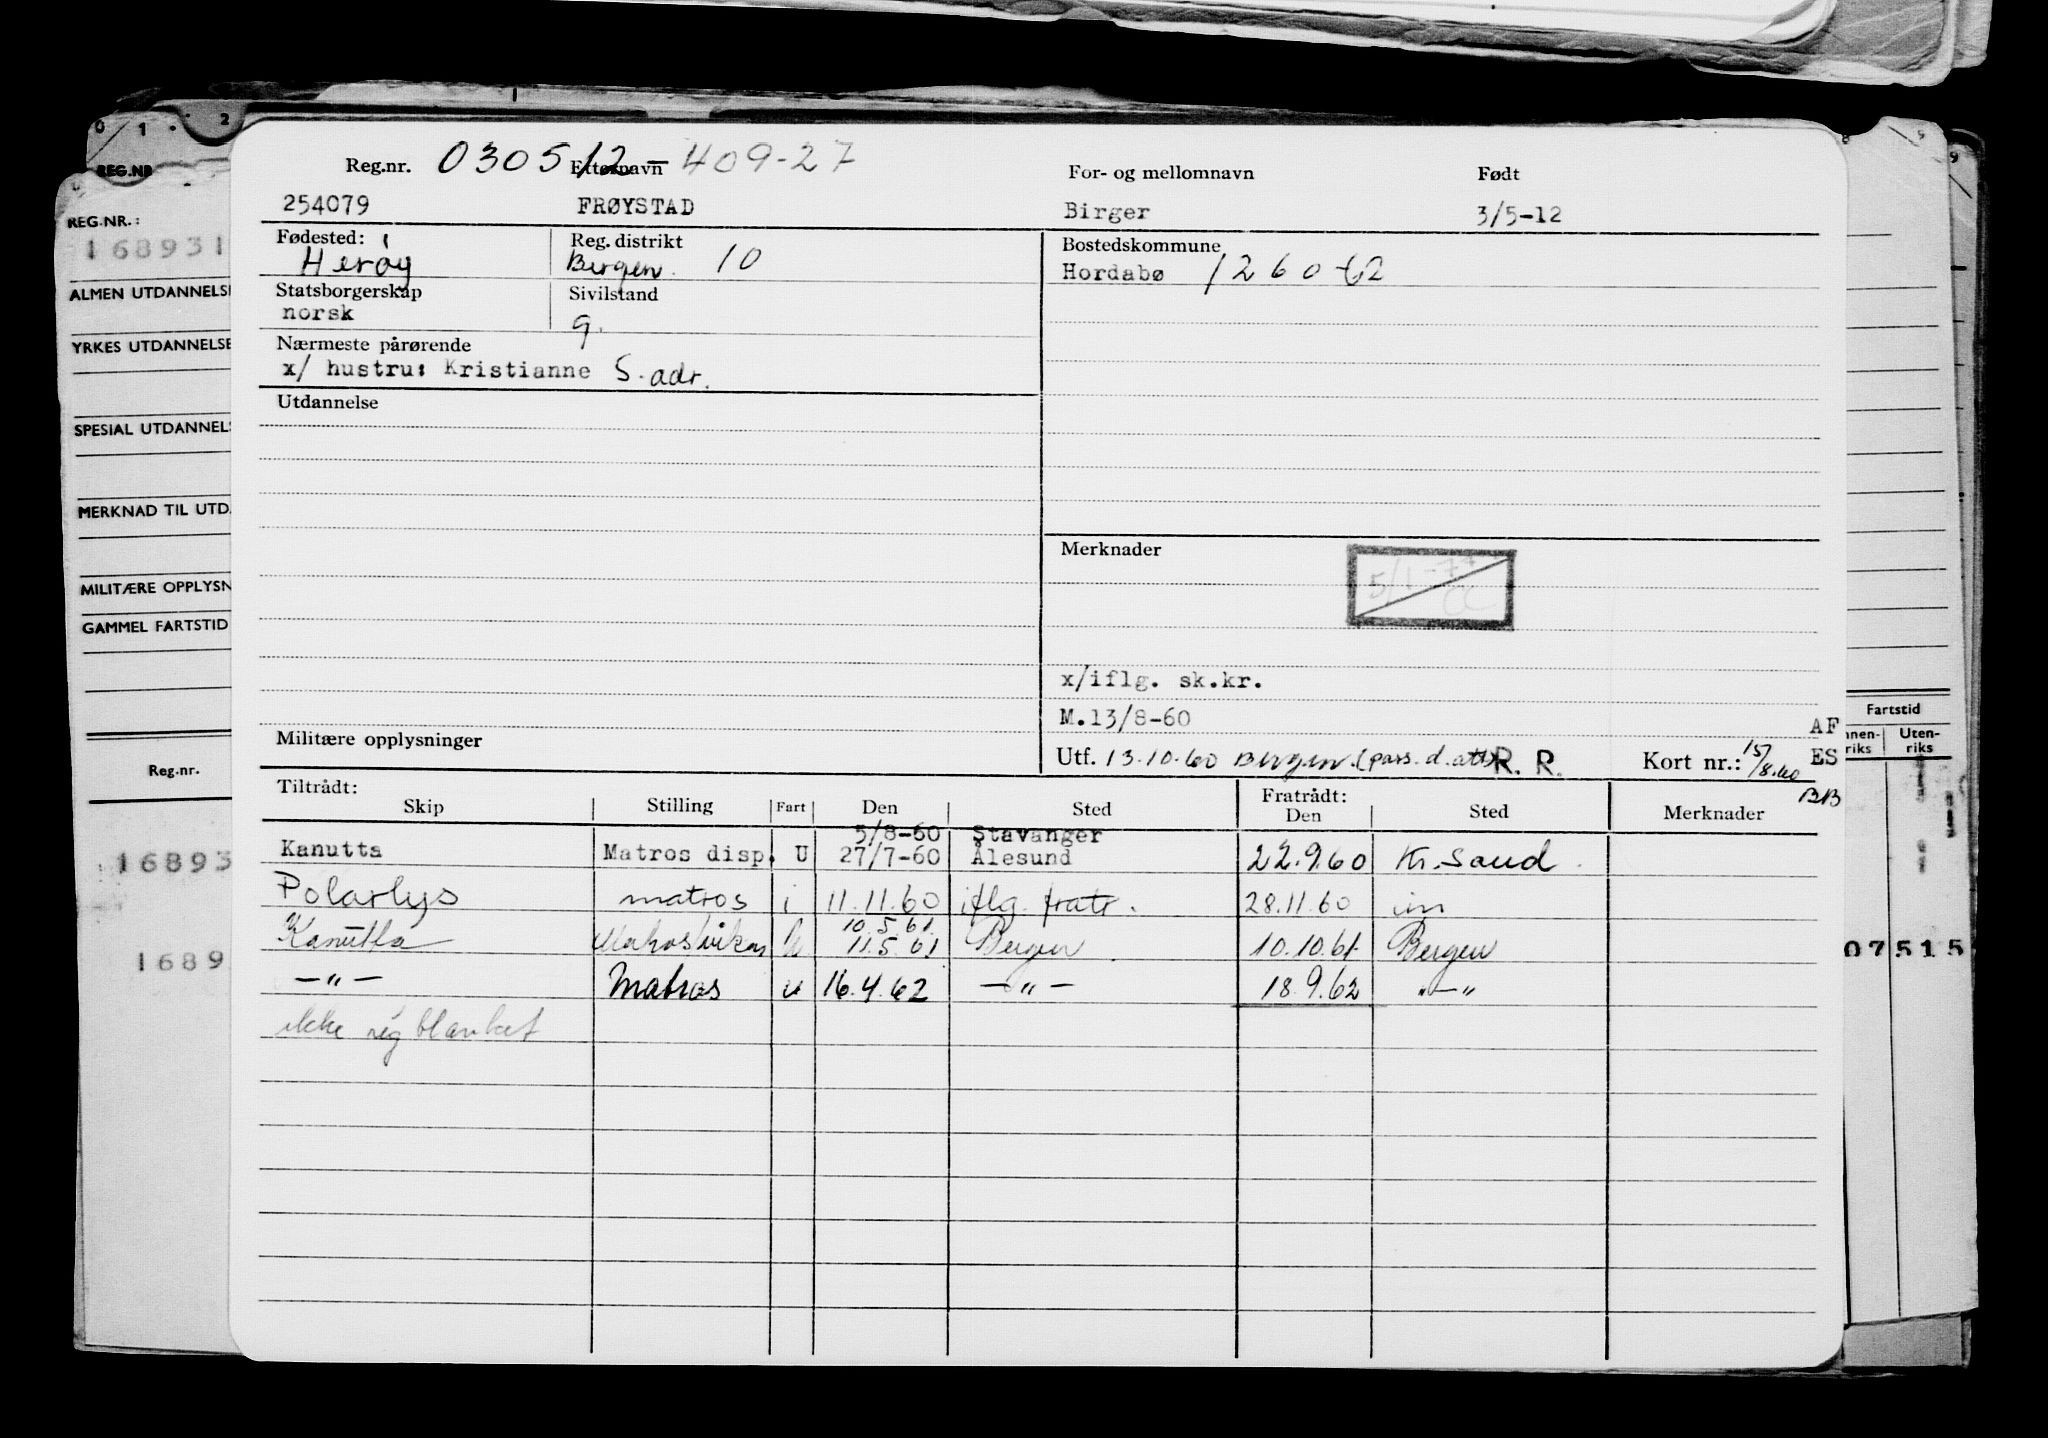 0 1 2
REG.NR
REG.NR.:
168931
ALMEN UTDANNELSE
YRKES UTDANNELSE
SPECIAL UTDANNELS
MERKNAD TIL UTD.
MILITÆRE OPPLYSN
GAMMEL FARTSTID
Reg.nr.
16893
1689
Reg.nr. 030512-409-27
Etternavn For- og mellomnavn Født
254079 FRØYSTAD Birger 3/5-12
Fødested: Reg. distrikt Bostedskommune
Herøy Bergen. 10 Hordabø 1260-62
Statsborgerskap Sivilstand
norsk g.
Nærmeste pårørende
x/ hustru: Kristianne S. adr.
Utdannelse
Merknader
5/1-77
CC
x/iflg. sk.kr.
M.13/8-60
Militære opplysninger Utf. 13.10.60 Bergen. (pass. d. att) R. R. Kort nr.: 15/8.60
AF
ES
BB
Tiltrådt: Fratrådt:
Skip Stilling Fart Den Sted Den Sted Merknader
5/8-60 Stavanger
Kanutta Matros disp. U 27/7-60 Ålesund 22.9.60 Kr.sand.
Polarlys matros i 11.11.60 iflg. fratr. 28.11.60 im
10.5.61
Kanutta Matrosvikar U 11.5.61 Bergen. 10.10.61 Bergen
—"— Matros u 16.4.62 —"— 18.9.62 "—"
ikke reg blanket
8 9
9
Fartstid
nnen-riks Uten-riks
07515